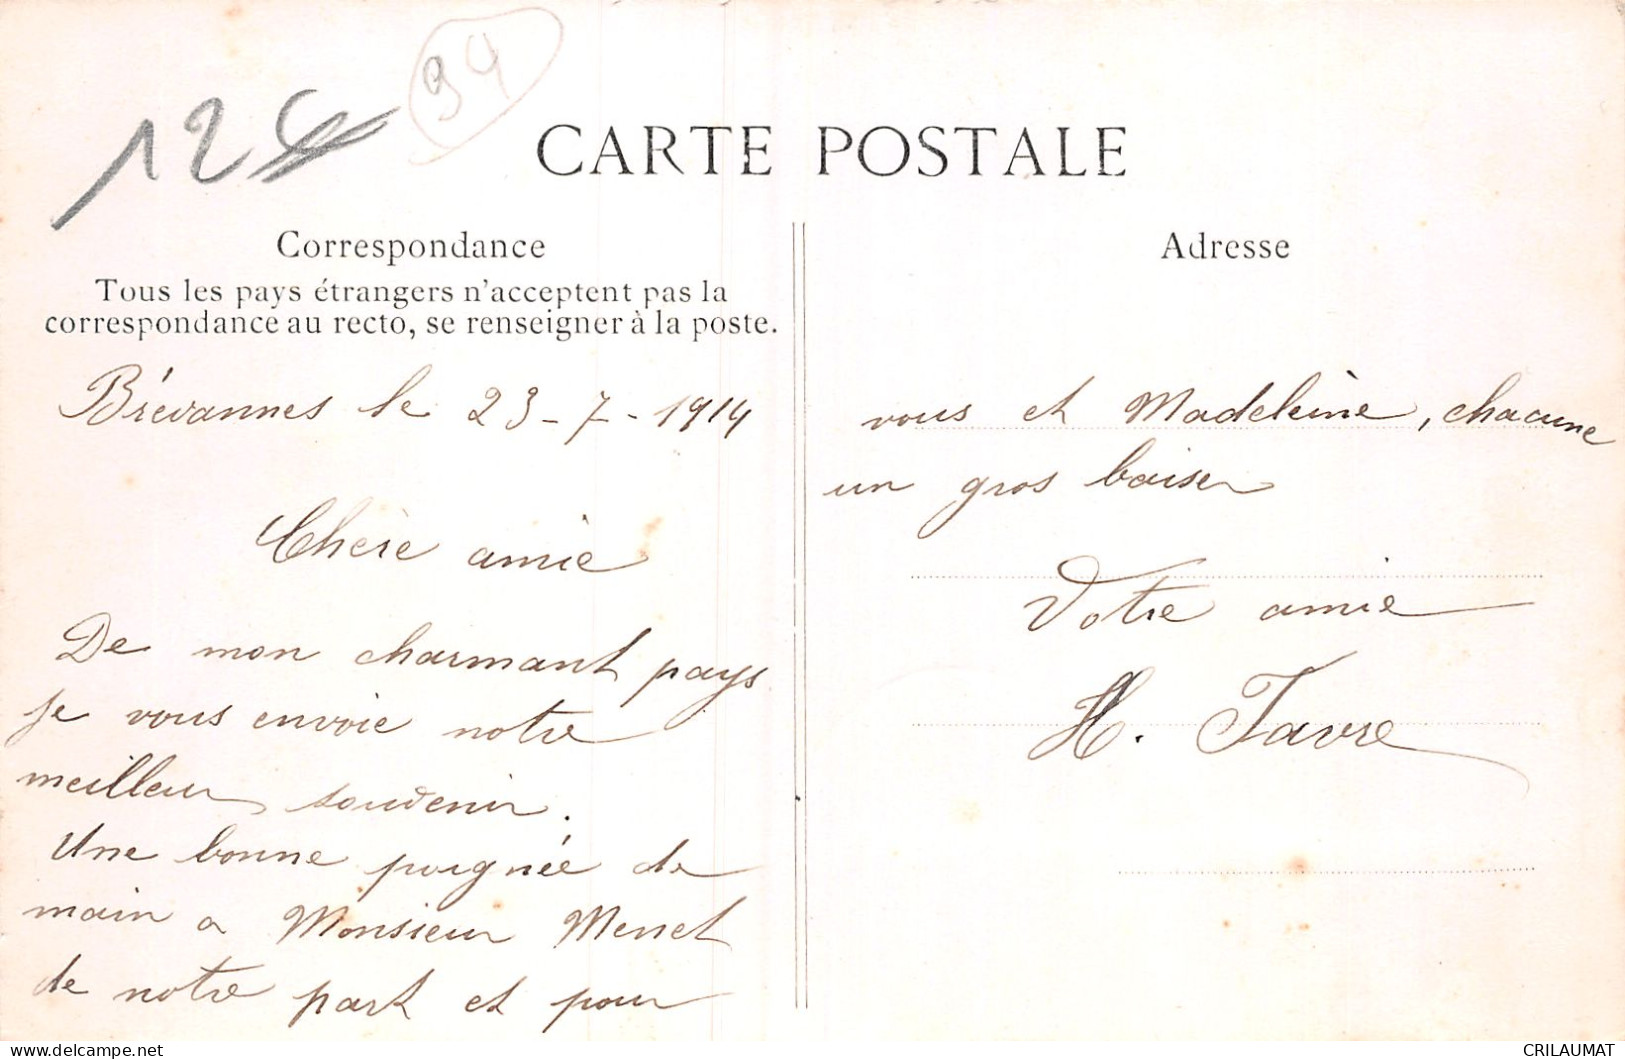 12€
94
CARTE POSTALE
Correspondance
Tous les pays étrangers n'acceptent pas la
correspondance au recto, se renseigner à la poste.
Brévannes le 23-7-1914
Chère amie
De mon charmant pays
je vous envoie notre
meilleur souvenir.
Une bonne poignée de
main a Monsieur Menet
de notre part et pour
Adresse
vous et Madeleine, chacune
un gros baiser
Votre amie
H. Favre
CRILAUMAT
delcampe.net